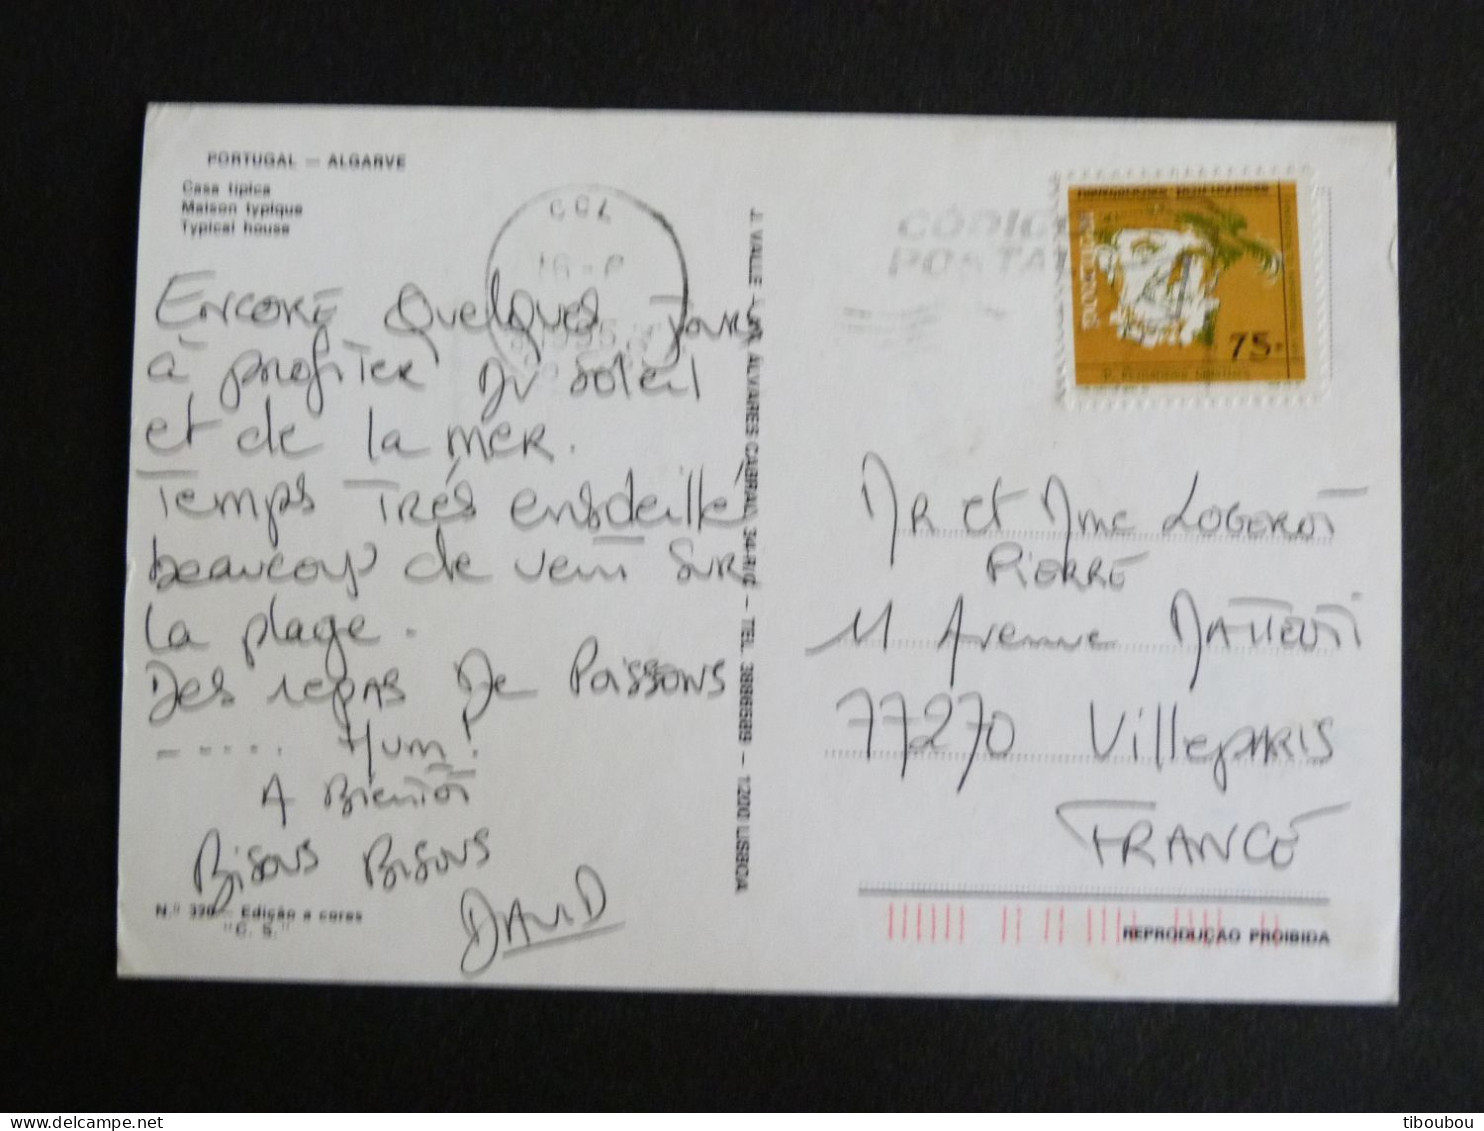 PORTUGAL — ALGARVE
Casa típica
Maison typique
Typical house
ENCORE quelques jours
à profiter du soleil
et de la mer.
Temps Trés ensoleillé
beaucoup de vent sur
la plage.
Des repas de Poissons
----.. Hum!
A Bientôt
Bisous Bisous
DAVID
N.º 320 — Edição a cores
"C. S."
CCL
1995
ALVARES CABRAL, 34-R/C — TEL. 3886589 — 1200 LISBOA
CÓDIGO
POSTAL
75.-
MR et Mme LOGEROT
PIERRE
11 Avenue MATTEOTTI
77270 Villeparis
FRANCE
REPRODUÇÃO PROIBIDA
tiboubou